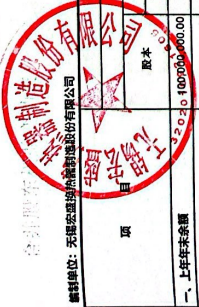 编制单位：无锡宏盛换热器制造股份有限公司
项 目
股本
一、上年年末余额
100,000,000.00
无锡宏盛换热器制造股份有限公司
32020